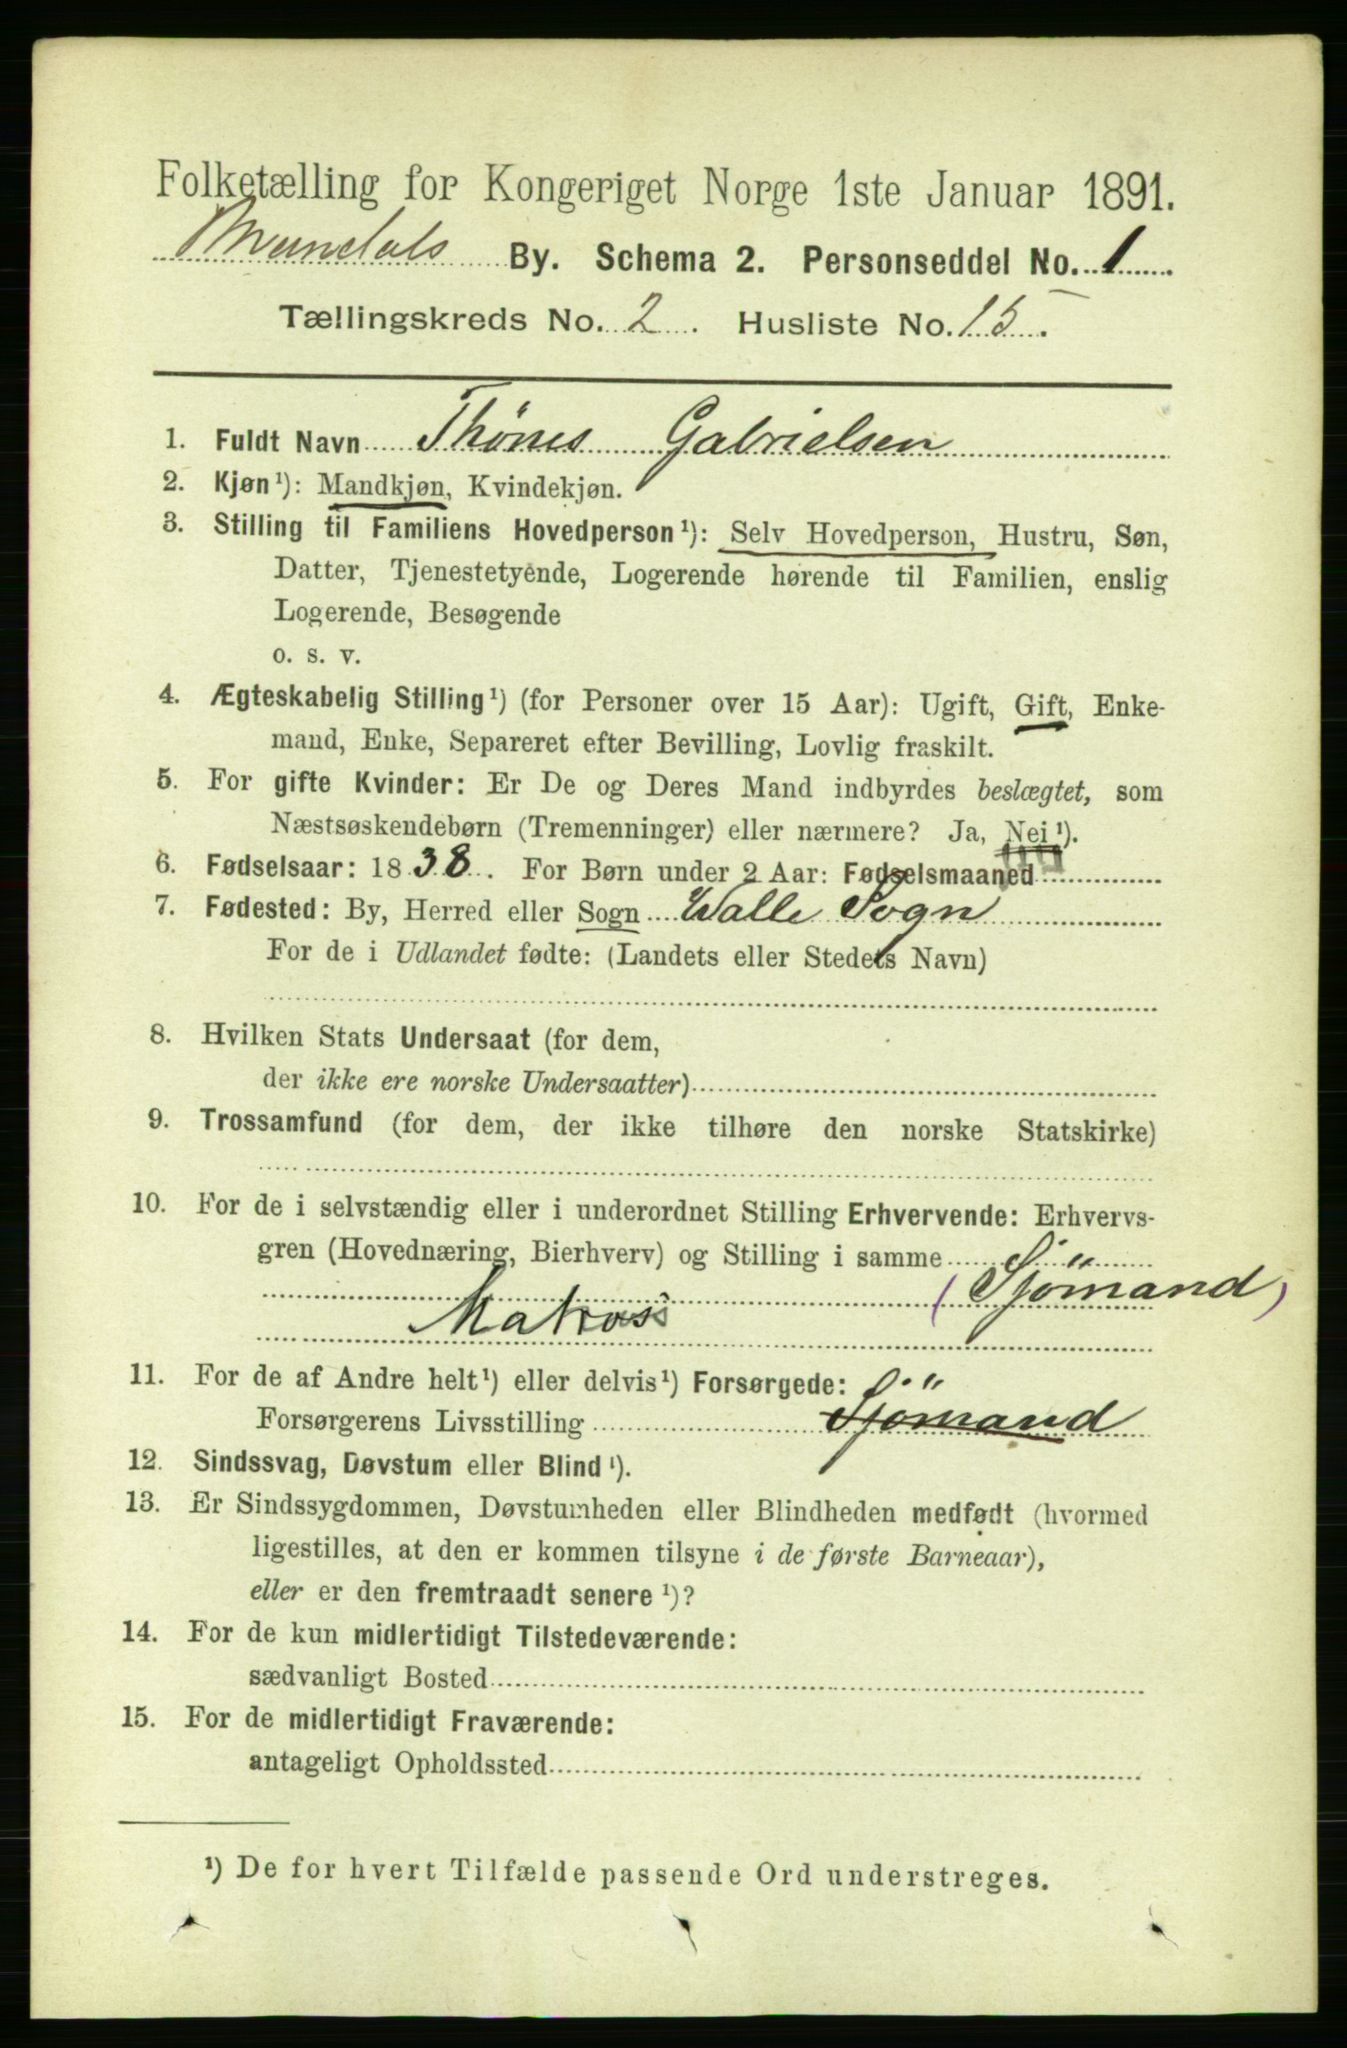 Folketælling for Kongeriget Norge 1ste Januar 1891.
Mandals By. Schema 2. Personseddel No. 1
Tællingskreds No. 2. Husliste No. 15.
1. Fuldt Navn Thønes Gabrielsen
2. Kjøn¹): Mandkjøn, Kvindekjøn.
3. Stilling til Familiens Hovedperson¹): Selv Hovedperson, Hustru, Søn,
Datter, Tjenestetyende, Logerende hørende til Familien, enslig
Logerende, Besøgende
o. s. v.
4. Ægteskabelig Stilling¹) (for Personer over 15 Aar): Ugift, Gift, Enke-
mand, Enke, Separeret efter Bevilling, Lovlig fraskilt.
5. For gifte Kvinder: Er De og Deres Mand indbyrdes beslægtet, som
Næstsøskendebørn (Tremenninger) eller nærmere? Ja, Nei¹).
6. Fødselsaar: 1838. For Børn under 2 Aar: Fødselsmaaned
7. Fødested: By, Herred eller Sogn Walle Sogn
For de i Udlandet fødte: (Landets eller Stedets Navn)
8. Hvilken Stats Undersaat (for dem,
der ikke ere norske Undersaatter)
9. Trossamfund (for dem, der ikke tilhøre den norske Statskirke)
10. For de i selvstændig eller i underordnet Stilling Erhvervende: Erhvervs-
gren (Hovednæring, Bierhverv) og Stilling i samme
(Sjömand)
Matros
11. For de af Andre helt¹) eller delvis¹) Forsørgede:
Forsørgerens Livsstilling Sjömand
12. Sindssvag, Døvstum eller Blind¹).
13. Er Sindssygdommen, Døvstumheden eller Blindheden medfødt (hvormed
ligestilles, at den er kommen tilsyne i de første Barneaar),
eller er den fremtraadt senere¹)?
14. For de kun midlertidigt Tilstedeværende:
sædvanligt Bosted
15. For de midlertidigt Fraværende:
antageligt Opholdssted
¹) De for hvert Tilfælde passende Ord understreges.